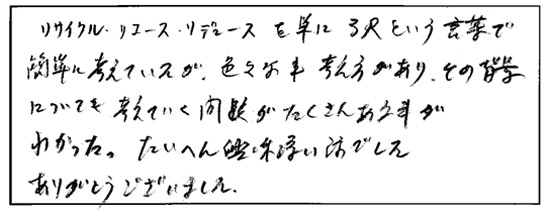 リサイクル・リユース・リデュースを単に3Rという言葉で
簡単に考えていたが、色々な考え方があり、その
についても考えていく問題がたくさんある事が
わかった。たいへん興味深い話でした
ありがとうございました。